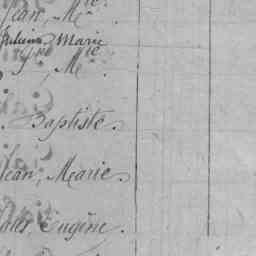 Jean, Mie
Julien, Marie
Mie
Baptiste.
Jean, Marie.
Eugène.